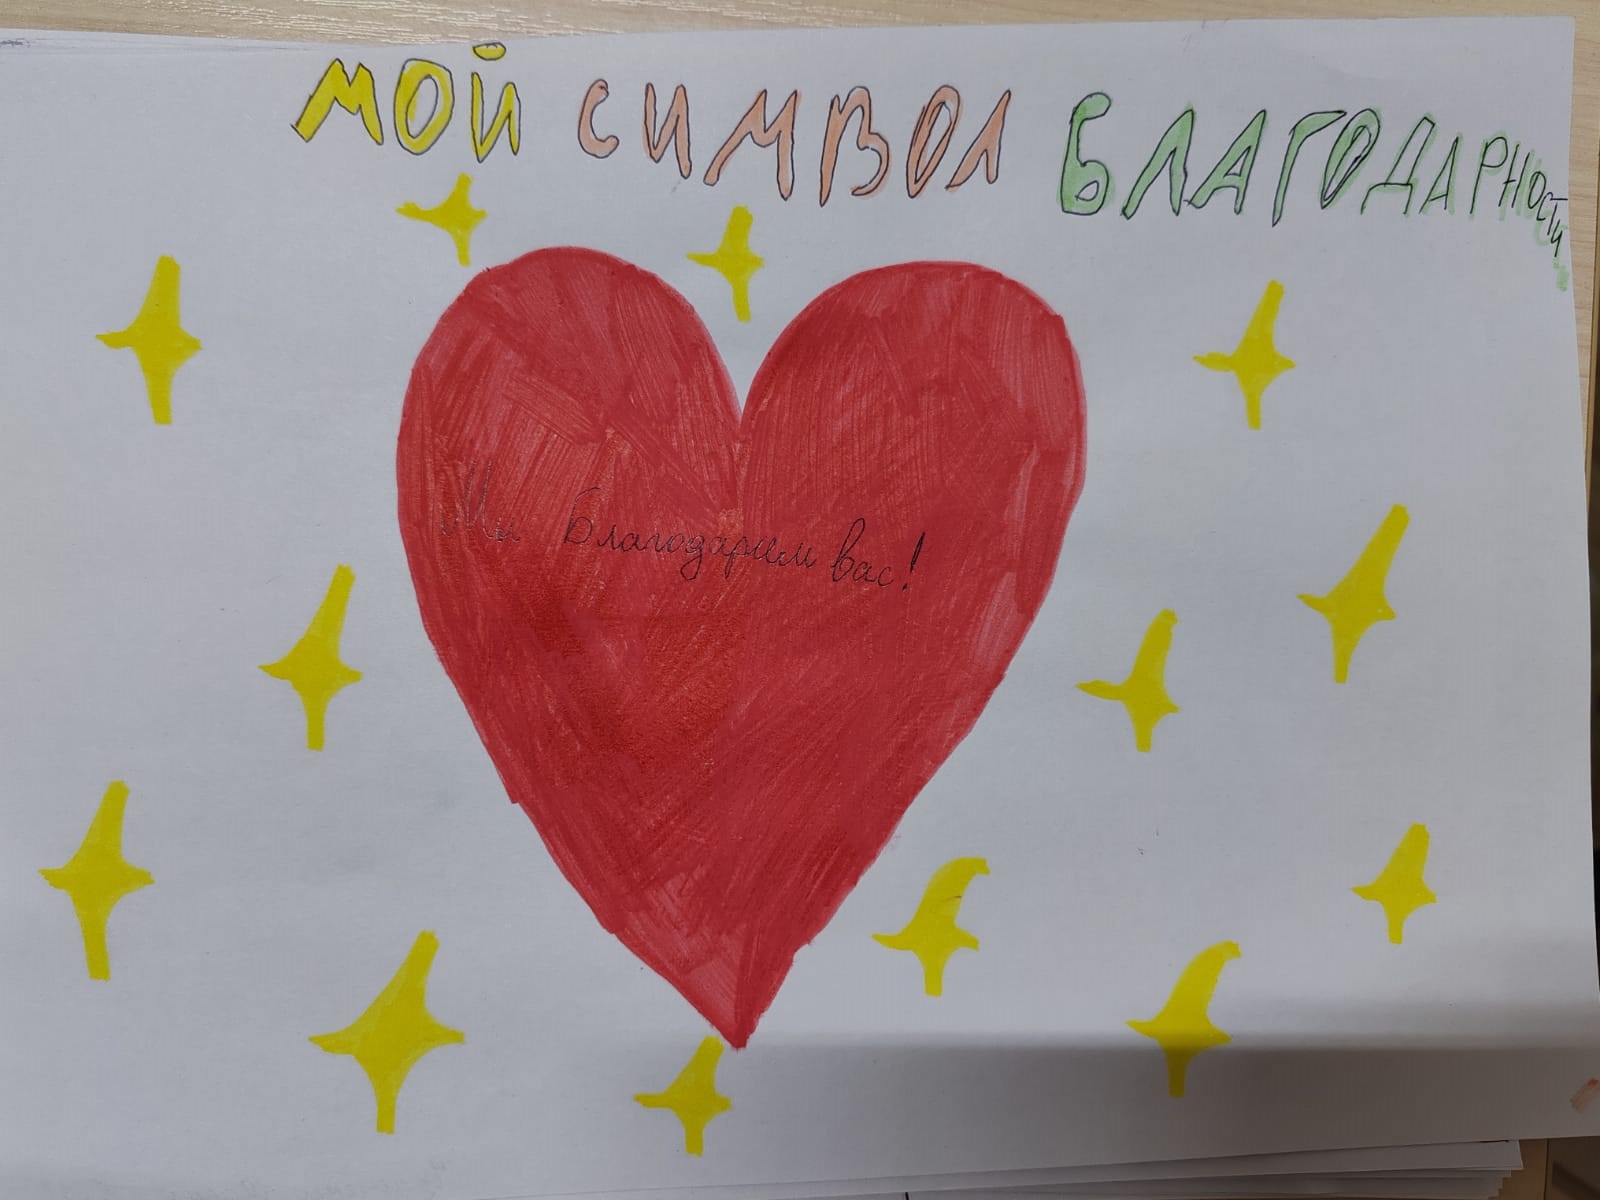 МОЙ СИМВОЛ БЛАГОДАРНОСТИ
Мы Благодарим вас!